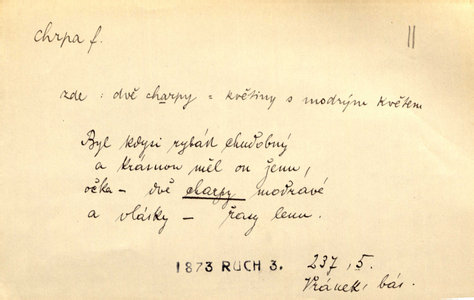 chrpa f. 11
zde : dvě charpy = květiny s modrým květem
Byl kdysi rybář chudobný
a krásnou měl on ženu,
očka – dvě charpy modravé
a vlásky – řasy lenu.
1873 RUCH 3. 237, 5.
Vránek, bás.